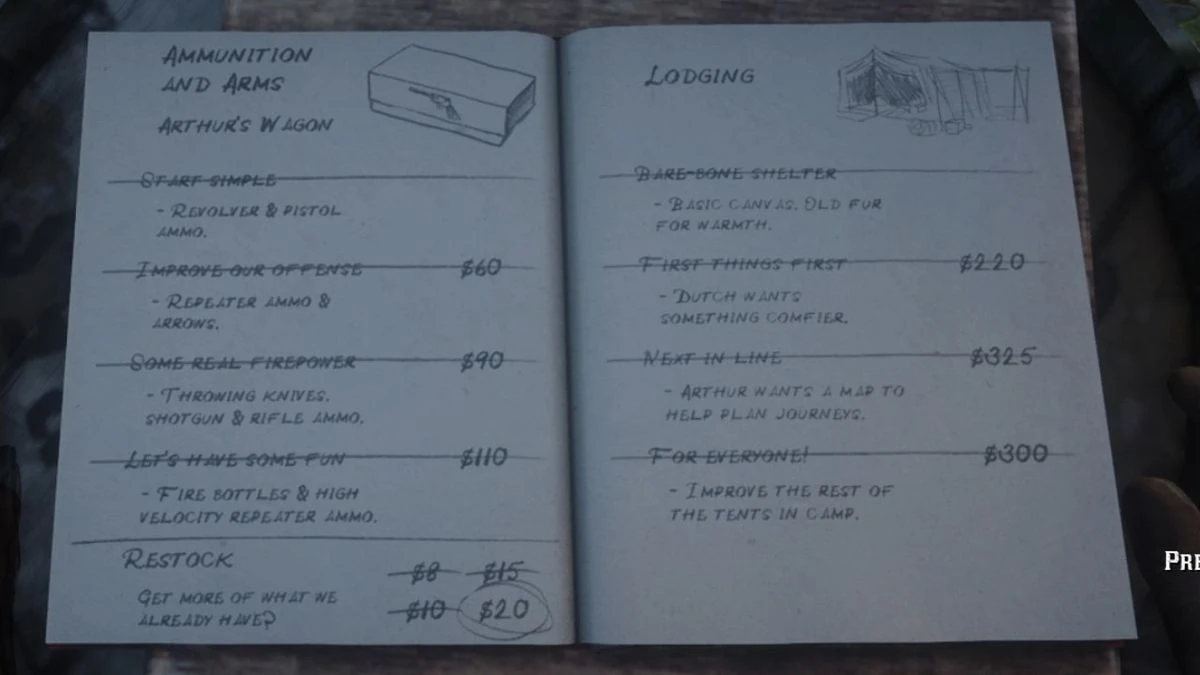 AMMUNITION
AND ARMS
ARTHUR'S WAGON
START SIMPLE
- REVOLVER & PISTOL
AMMO.
IMPROVE OUR OFFENSE $60
- REPEATER AMMO &
ARROWS.
SOME REAL FIREPOWER $90
- THROWING KNIVES.
SHOTGUN & RIFLE AMMO.
LET'S HAVE SOME FUN $110
- FIRE BOTTLES & HIGH
VELOCITY REPEATER AMMO.
RESTOCK
$8 $15
GET MORE OF WHAT WE
ALREADY HAVE?
$10 $20
LODGING
BARE-BONE SHELTER
- BASIC CANVAS. OLD FUR
FOR WARMTH.
FIRST THINGS FIRST $220
- DUTCH WANTS
SOMETHING COMFIER.
NEXT IN LINE $325
- ARTHUR WANTS A MAP TO
HELP PLAN JOURNEYS.
FOR EVERYONE! $300
- IMPROVE THE REST OF
THE TENTS IN CAMP.